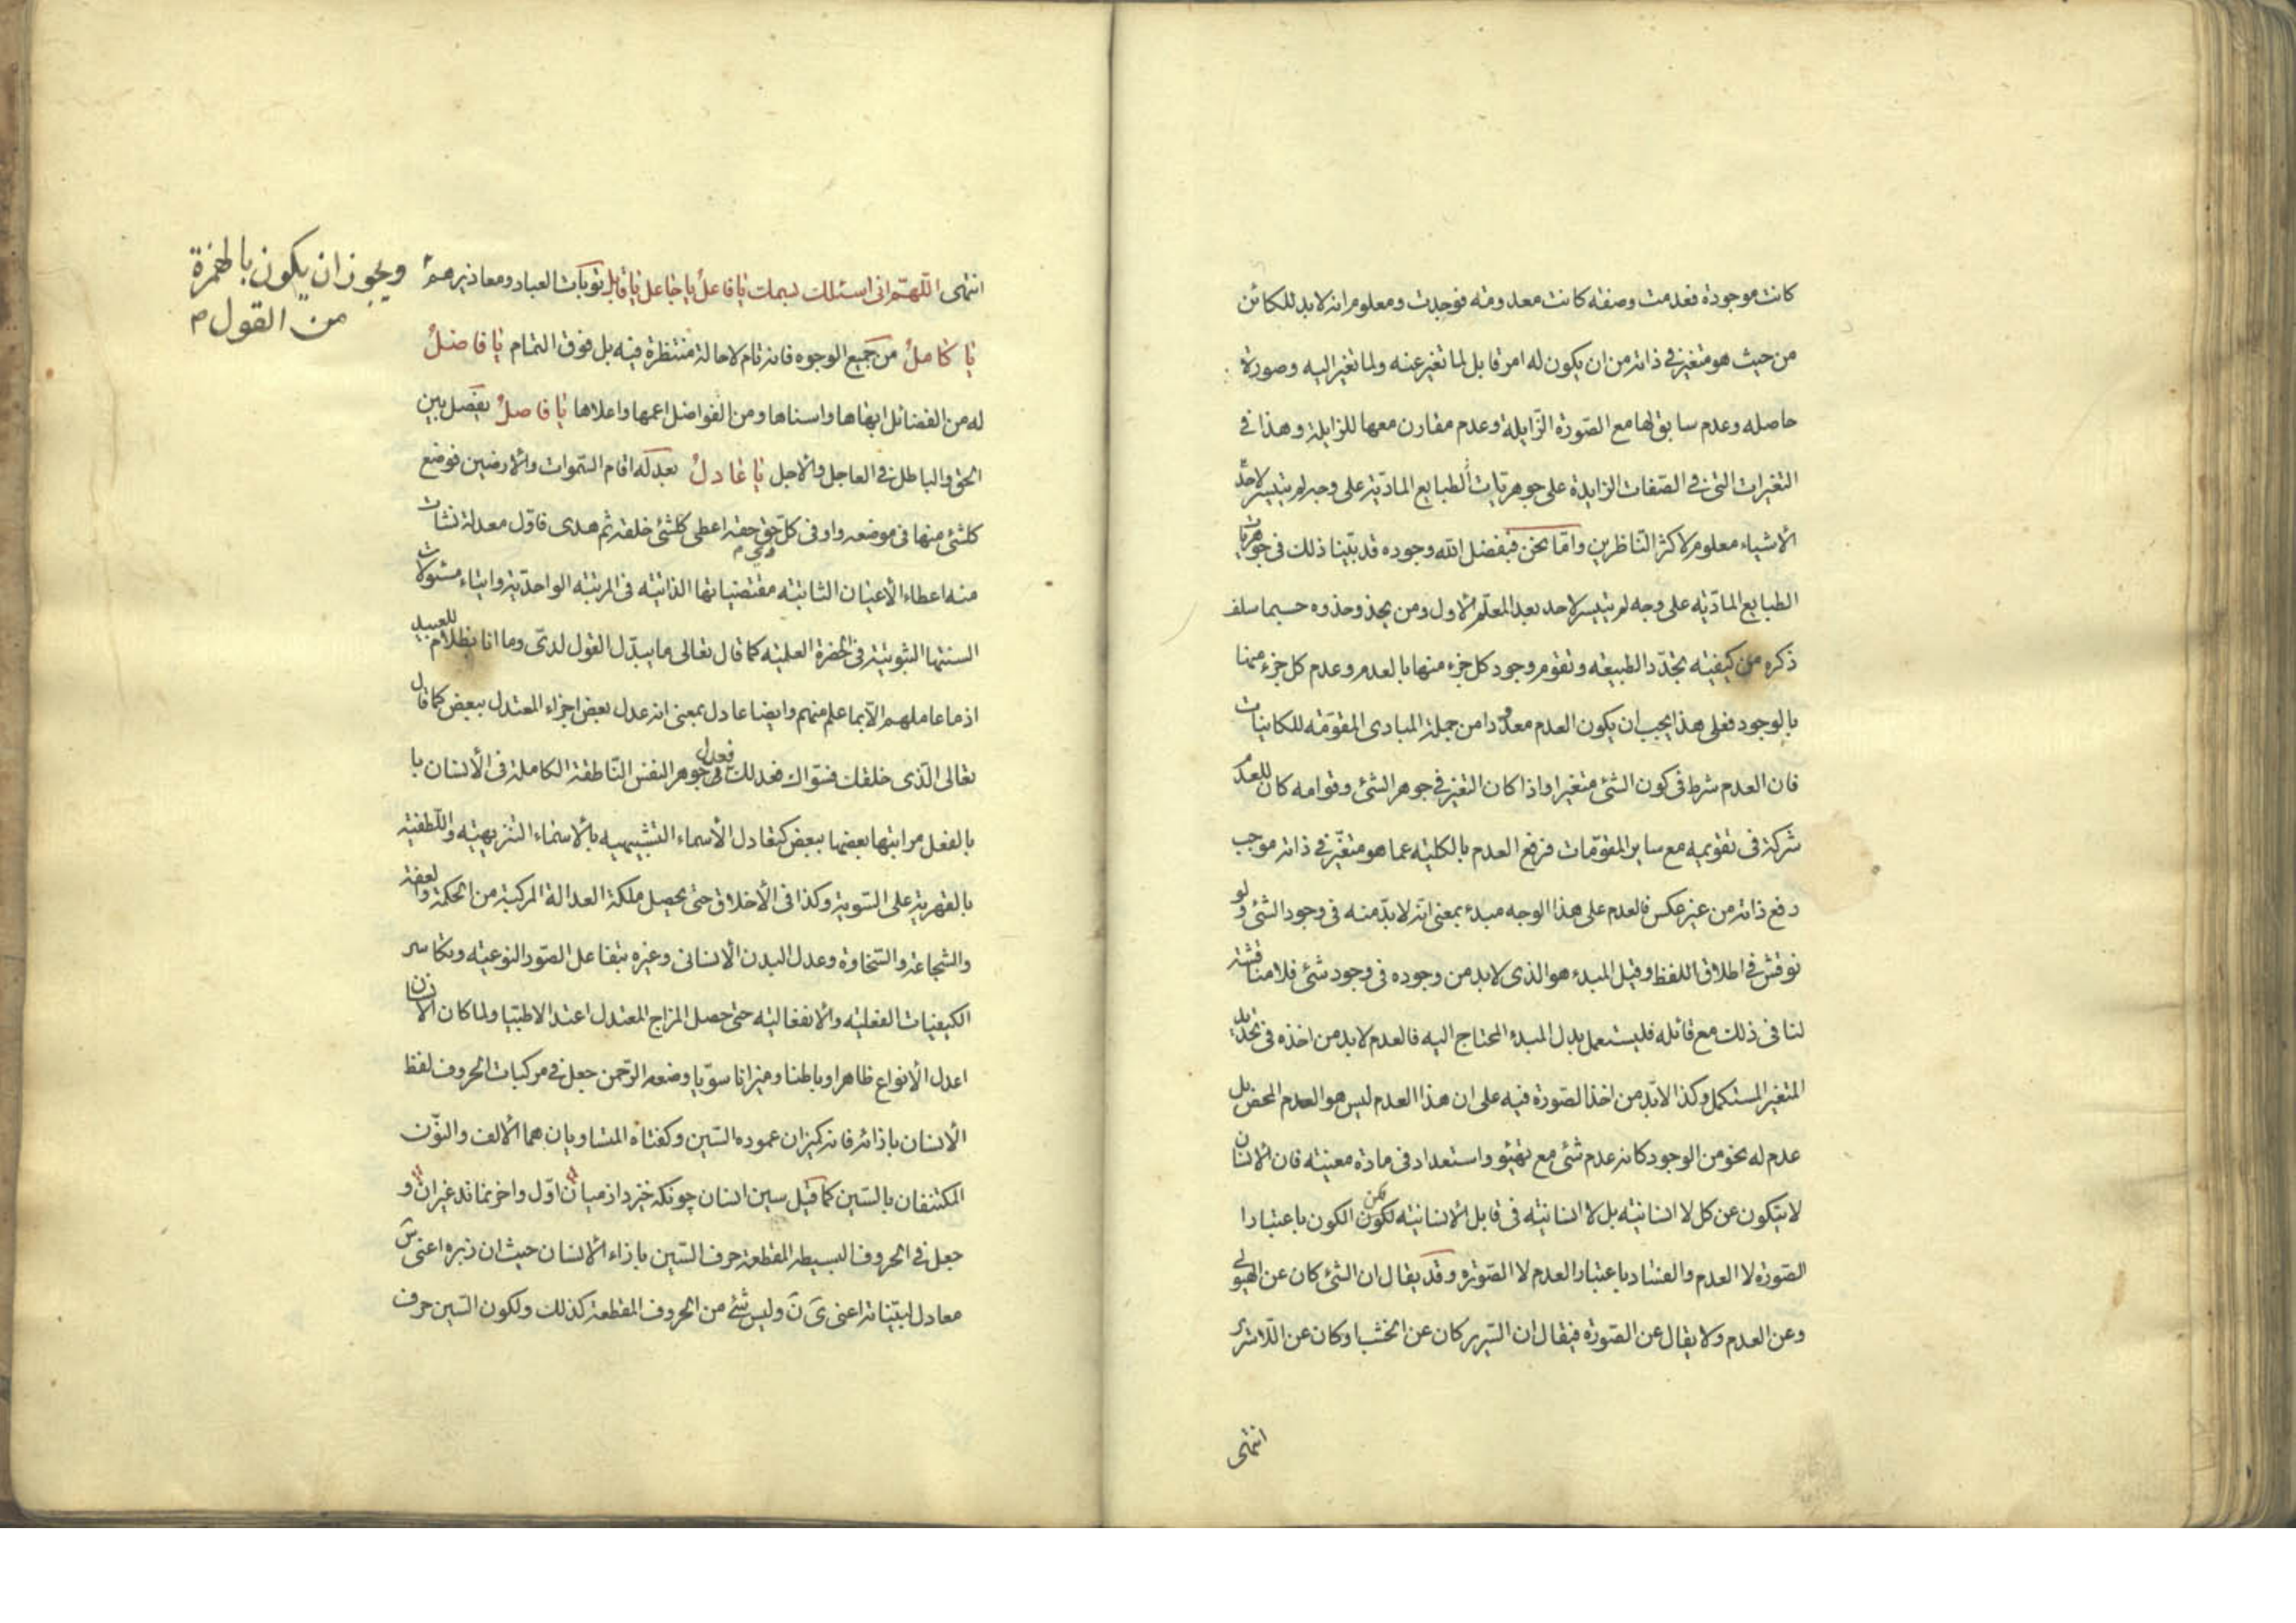 كانت موجودة فعدمت وصفته كانت معدومته فوجدت ومعلوم انه لابد للكائن
من حيث هو متغير في ذاته من ان يكون له امر قابل لما تغير عنه ولما تغير اليه وصورة
حاصله وعدم سابق لها مع الصّورة الزّايلة وعدم مقارن معها للزايلة وهذا في
التغيرات التى فى الصّفات الزايدة على جوهريّات الطبايع المادّية على وجه لم يتيسر لاحدٍ
الأشياء معلوم لاكثر النّاظرين وامّا نحن فبفضل الله وجوده قد بيّنا ذلك فى جوهريات
الطبايع المادّيّه على وجه لم يتيسر لاحد بعد المعلّم الاول ومن يحذو حذوه حسبما سلف
ذكره من كيفيّه تجدّد الطبيعه وتقوم وجود كل جزء منها بالعدم وعدم كل جزء منها
بالوجود فعلى هذا يجب ان يكون العدم معدودا من جملة المبادى المقوّمه للكاينات
فان العدم شرط فى كون الشئ متغيرا واذا كان التغير في جوهر الشئ وقوامه كان للعدم
شركة فى تقويمه مع ساير المقوّمات فرفع العدم بالكليّه عما هو متغيّر فى ذاته موجب
رفع ذاته من غير عكس فالعدم على هذا الوجه مبدء بمعنى انّه لابدّ منه فى وجود الشئ ولو
نوقش في اطلاق اللفظ وقيل المبدء هو الذى لابد من وجوده فى وجود شئ فلا مناقشة
لنا فى ذلك مع قائله فليستعمل بدل المبدء المحتاج اليه فالعدم لابد من اخذه فى تحديد
المتغير المستكمل وكذا لابدّ من اخذ الصّورة فيه على ان هذا العدم ليس هو العدم المحض بل
عدم له نحو من الوجود كانه عدم شئ مع تهيّؤ واستعداد فى مادة معينه فان الانسان
لا يتكون عن كل لا انسانيّه بل لا انسانيّه فى قابل الأنسانيّه لكن الكون باعتبار
الصّورة لا العدم والفساد باعتبار العدم لا الصّورة وقد يقال ان الشئ كان عن الهيولى
وعن العدم ولا يقال عن الصّورة فيقال ان السّرير كان عن الخشب او كان عن اللّاسرير
انتهى
انتهى اللّهمّ انى اسئلك بسمك يا فاعلُ يا جاعل يا قابل توبات العباد ومعاذيرهم
ويجوز ان يكون بالهمزة
من القول م
يا كاملُ من جميع الوجوه فانه تام لا حالة منتظرة فيه بل فوق التمام يا فاضلُ
له من الفضائل ابهاها واسناها ومن الفواضل اعمها واعلاها يا فاصلُ يفصل بين
الحق والباطل فى العاجل والاجل يا عادلُ بعدله اقام السّموات والأرضين فوضع
كلشئ منها فى موضعه واوفى كلّ حق حقه اعطى كلشئ خلقه ثم هدى فاوّل معدلة نشات
منه اعطاء الأعيان الثابته مقتضياتها الذاتيّه فى المرتبه الواحديّه وايتاء مسئولات
السنتها الثبوتيّة فى الحضرة العلميّه كما قال تعالى ما يبدّل القول لدىّ وما انا بظلام للعبيد
اذ ما عاملهم الّا بما علم منهم وايضا عادل بمعنى انه عدل بعض اجزاء المعتدل ببعض كما قال
تعالى الّذى خلقك فسوّاك فعدلك فعدل فى جوهر النفس النّاطقة الكاملة فى الأنسان با
بالفعل مراتبها بعضها ببعض كتعادل الأسماء التشبيهيه بالأسماء التنزيهيّه واللّطفيّه
بالقهريّة على السّوية وكذا فى الأخلاق حتى يحصل ملكة العدالة المركبة من الحكمة والعفة
والشجاعة والسّخاوة وعدل البدن الأنسانى وغيره بتفاعل الصّور النوعيّه وتكاسر
الكيفيات الفعليّه والأنفعاليّه حتى حصل المزاج المعتدل اعتدالا طبّيا ولما كان الانسان
اعدل الأنواع ظاهرا وباطنا وميزانا سويّا وضعه الرّحمن جعل في مركبات الحروف لفظ
الأنسان بازائه فانه كميزان عموده السّين وكفتاه المتساويان هما الألف والنوّن
المكتنفان بالسّين كما قيل سين انسان چونكه خيزد از ميان اوّل واخر نماند غير ان و
جعل فى الحروف البسيطه المقطعة حرف السّين بازاء الأنسان حيث ان زبره اعنى سَ
معادل لبيّناته اعنى ىَ نَ وليس شئ من الحروف المقطعة كذلك ولكون السّين حرف